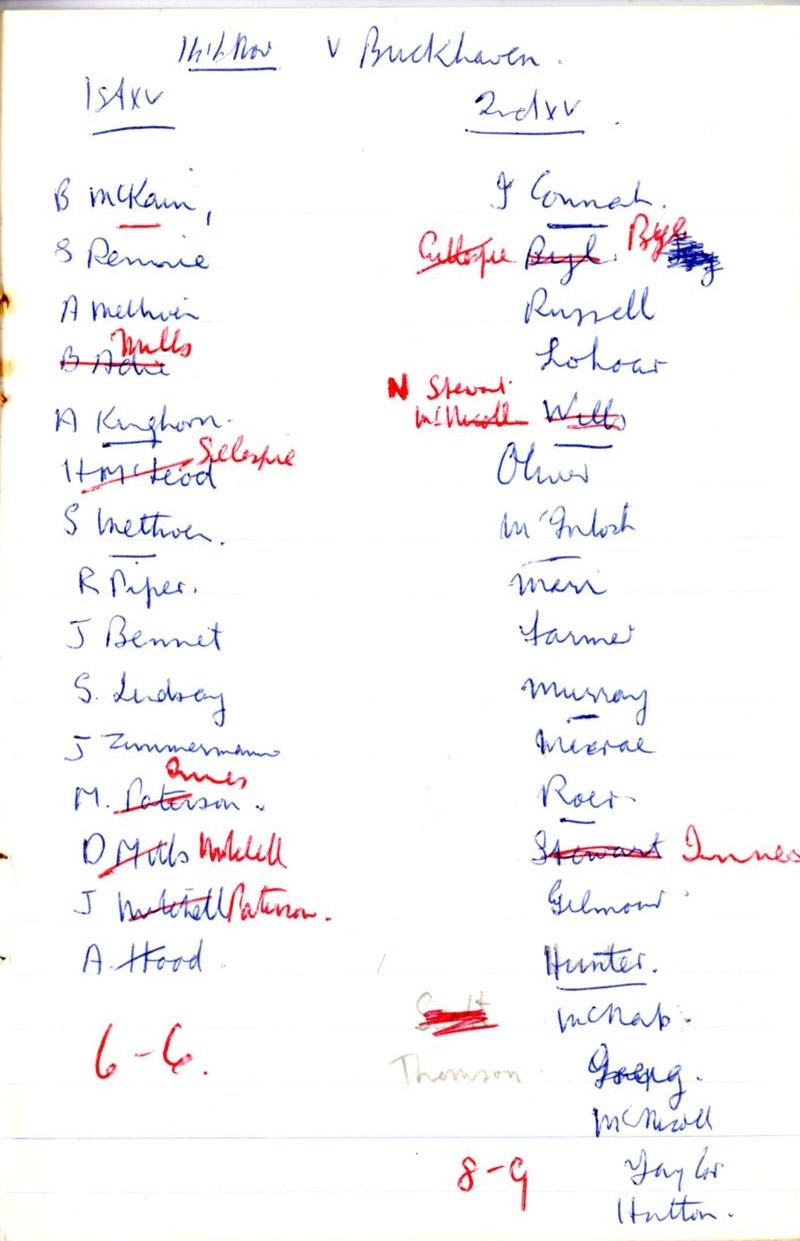 16th Nov v Buckhaven.
1st XV
B McKain,
S Rennie
A Methven
B Adie Mills
A Kinghorn.
H McLeod Gillespie
S Methven.
R Piper.
J Bennet
S. Lindsay
J Zimmermann
M. Paterson. Innes
D Mills Mitchell
J Mitchell Paterson.
A Hood
6-6.
2nd XV
I Connah.
Gillespie Bryl. Bryl
Russell
Lohoar
N Stewart
McNicoll Wills
Oliver
McIntosh
Marr
Farmer
Murray
McCrae
Roer
Stewart Innes
Gilmour
Hunter.
Scott McNab.
Thomson Greig.
McNicoll
Taylor
Hutton.
8-9